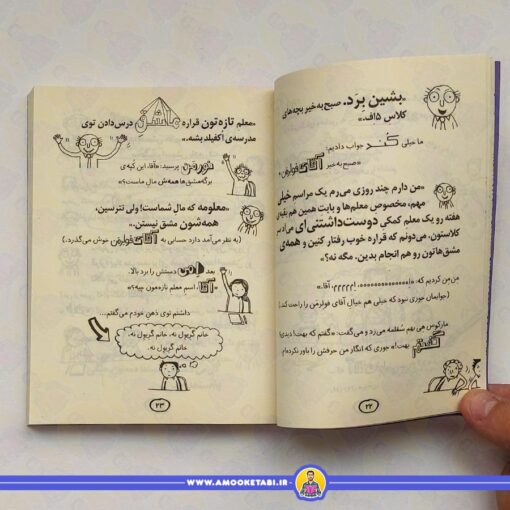 «بشین بِرَد. صبح به خیر بچه‌های
کلاس ۵اف.»
ما خیلی کُند جواب دادیم:
«صبح به خیر آقای فولِرمَن.»
«من دارم چند روزی می‌رم یک مراسم خیلی
مهم، مخصوص معلم‌ها و بابت همین هم بقیه‌ی
هفته رو یک معلم کمکیِ دوست‌داشتنی‌ای می‌آد سرِ
کلاستون. می‌دونم که قراره خوب رفتار کنین و همه‌ی
مشق‌هاتون رو هم انجام بدین، مگه نه؟»
مِن‌مِن کردیم که:
(جوابمان جوری نبود که خیلی هم خیال آقای فولرمَن را راحت کند.)
مارکوس هی بهم سُقُلمه می‌زد و می‌گفت: «گفتم که بهت! دیدی!
گفتم بهت!» جوری که انگار من حرفش را باور نکرده‌ام.
۲۲
«معلم تازه‌تون قراره عاشق درس‌دادن توی
مدرسه‌ی اُکفیلد بشه.»
نورمَن پرسید: «آقا، این کُپه‌ی
برگه‌مشق‌ها همه‌ش مالِ ماست؟»
«معلومه که مال شماست! ولی نترسین،
همه‌شون مشق نیستن.»
(به نظر می‌آمد دارد حسابی به آقای فولرمَن خوش می‌گذرد.)
بعد اِمی دستش را برد بالا:
«آقا، اسم معلم تازه‌مون چیه؟»
داشتم توی ذهن خودم می‌گفتم...
خانم گریول نه، خانم گریول نه،
خانم گریول نه.
۲۳
WWW.AMOOKETABI.IR